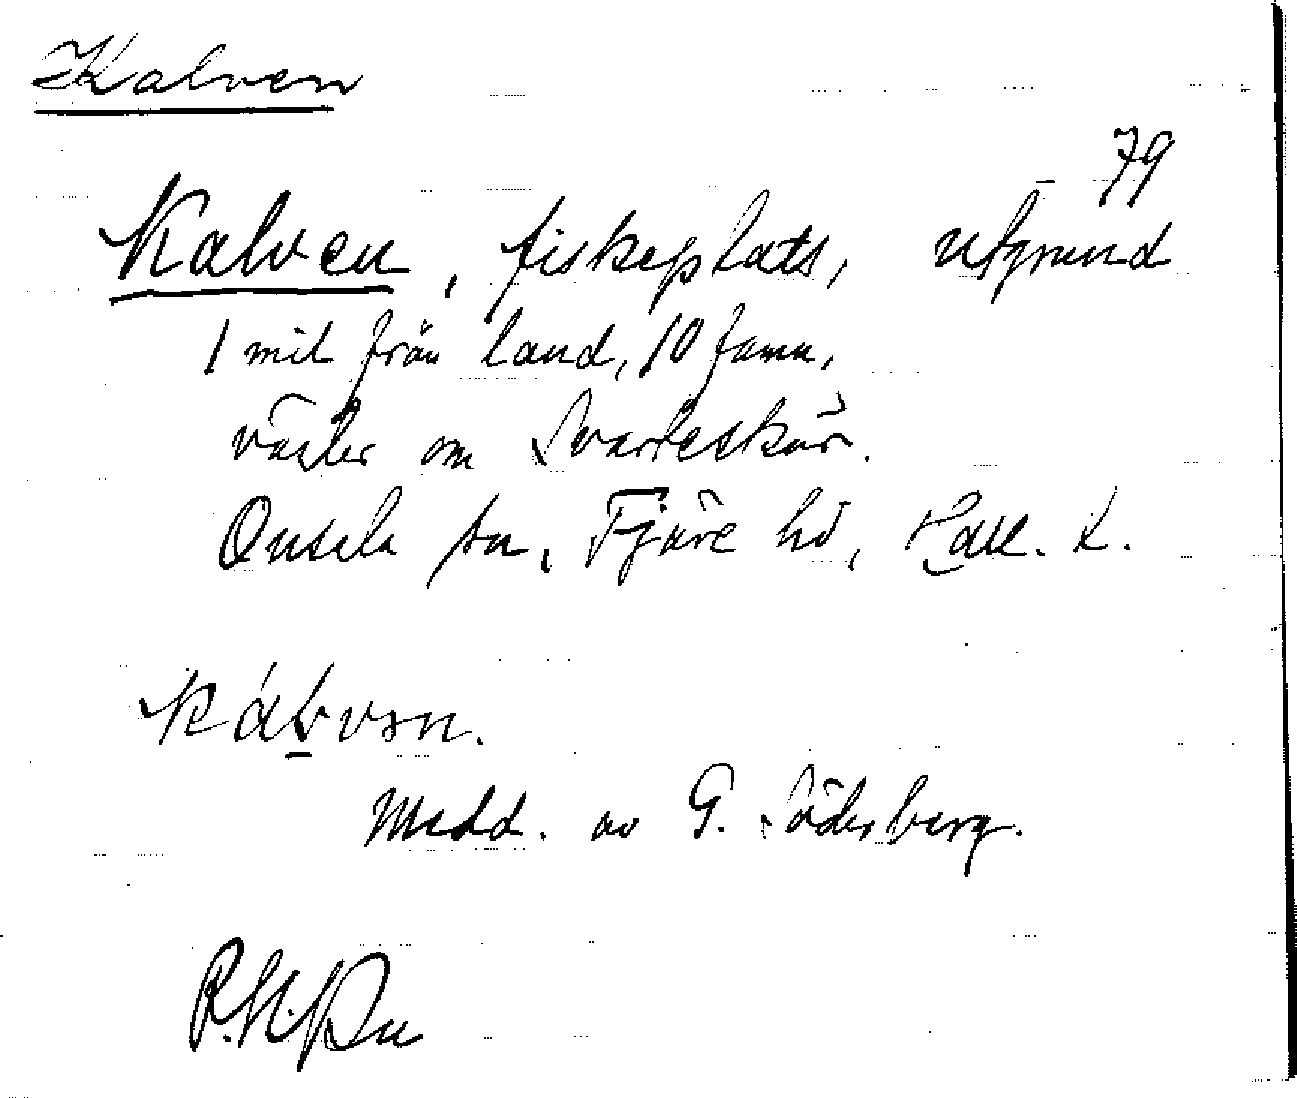 Kalven
79
Kalven, fiskeplats, utgrund
1 mil från land, 10 famn,
väster om Svarteskär.
Onsala sn, Fjäre hd, Hall. l.
Medd. av G. Söderberg.